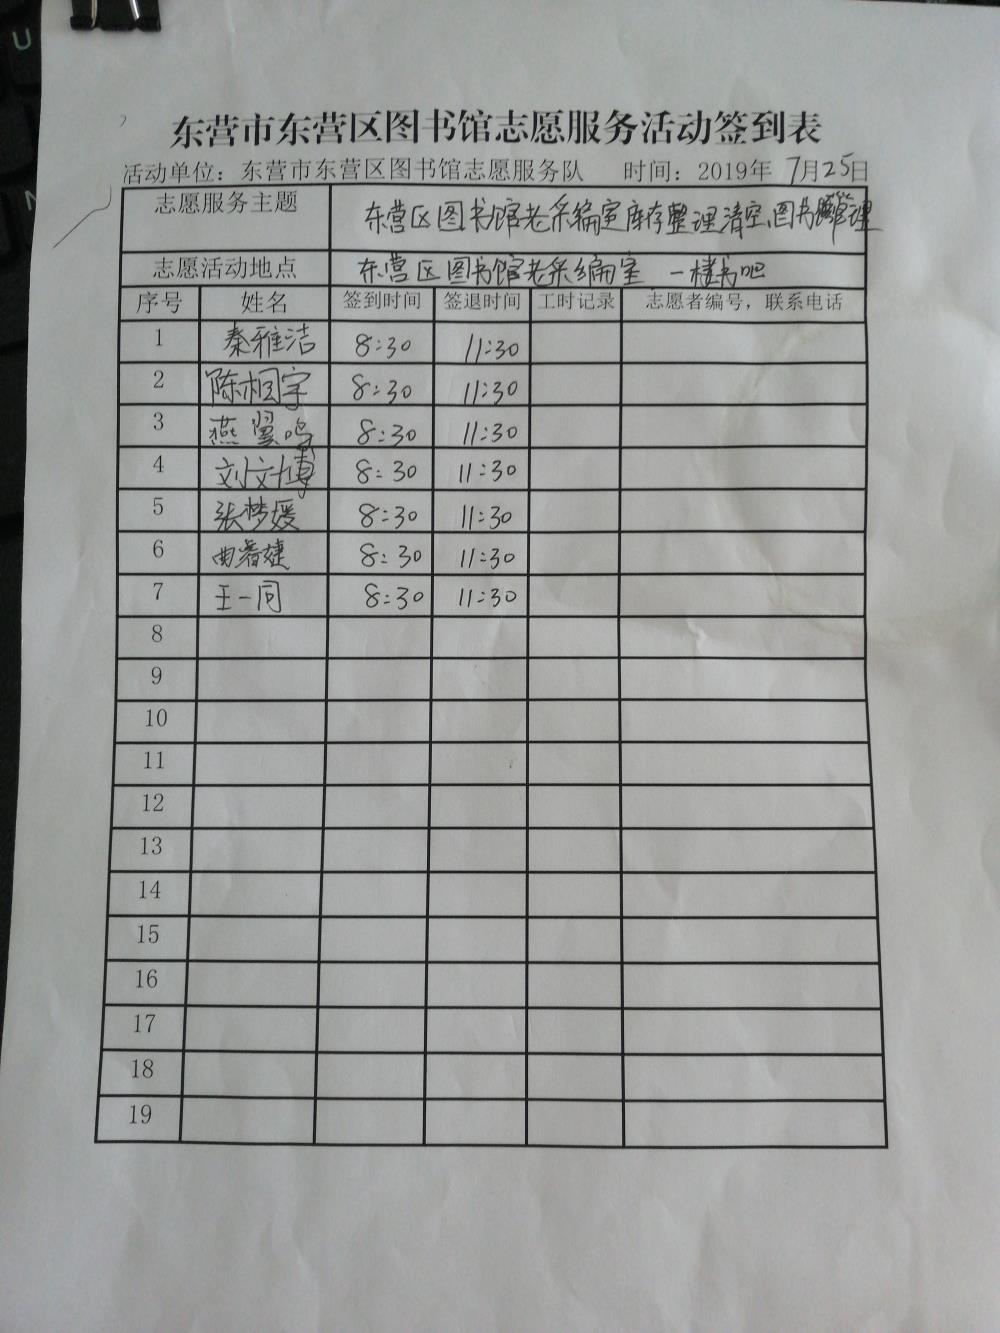 U
东营市东营区图书馆志愿服务活动签到表
活动单位：东营市东营区图书馆志愿服务队 时间：2019年 7月25日
志愿服务主题 东营区图书馆老采编室库存整理清空,图书管理
志愿活动地点 东营区图书馆老采编室 一楼书吧
序号 姓名 签到时间 签退时间 工时记录 志愿者编号，联系电话
1 秦雅洁 8:30 11:30
2 陈相宇 8:30 11:30
3 燕翼鸣 8:30 11:30
4 刘文博 8:30 11:30
5 张梦媛 8:30 11:30
6 曲睿婕 8:30 11:30
7 王一同 8:30 11:30
8
9
10
11
12
13
14
15
16
17
18
19